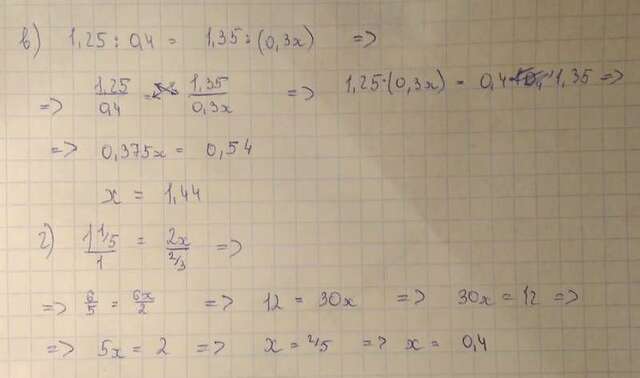 в) 1,25 : 0,4 = 1,35 : (0,3x) =>
=> 1,25/0,4 = 1,35/0,3x => 1,25·(0,3x) = 0,4 · 1,35 =>
=> 0,375x = 0,54
x = 1,44
г) 1 1/5 / 1 = 2x / 2/3 =>
=> 6/5 = 6x/2 => 12 = 30x => 30x = 12 =>
=> 5x = 2 => x = 2/5 => x = 0,4